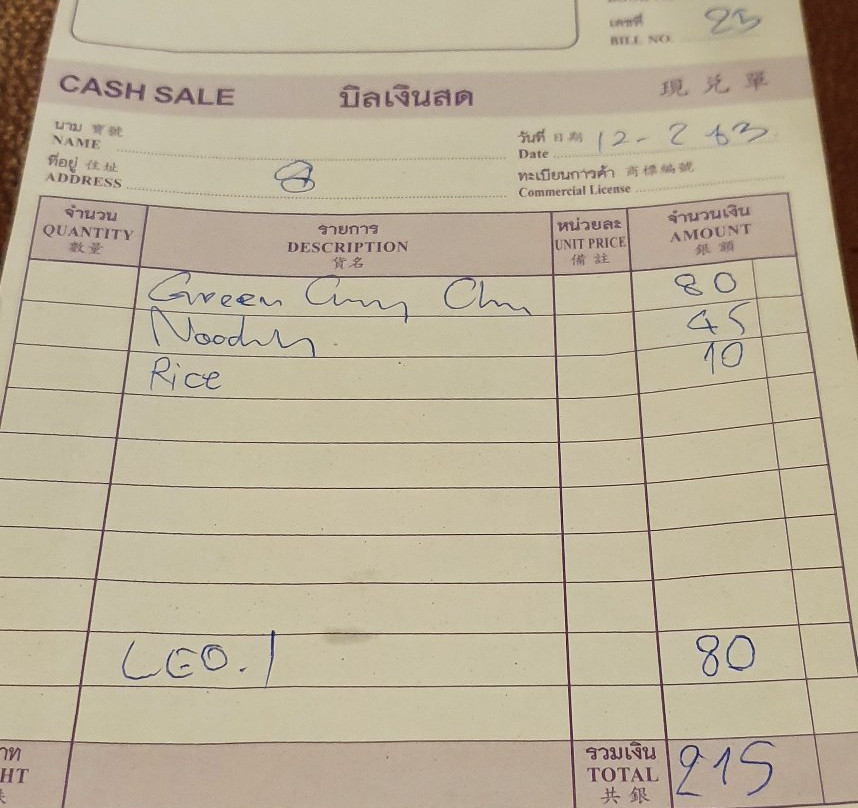 เลขที่ 25
BILL NO.
CASH SALE บิลเงินสด 現兌單
นาม 寶號
NAME
วันที่ 日期 12-2 63
Date
ที่อยู่ 住址
ADDRESS 8
ทะเบียนการค้า 商標編號
Commercial License
จำนวน รายการ หน่วยละ จำนวนเงิน
QUANTITY DESCRIPTION UNIT PRICE AMOUNT
數量 貨名 備註 銀額
Green Curry Chn 80
Noodles 45
Rice 10
LEO. 1 80
าท รวมเงิน 215
HT TOTAL
共銀